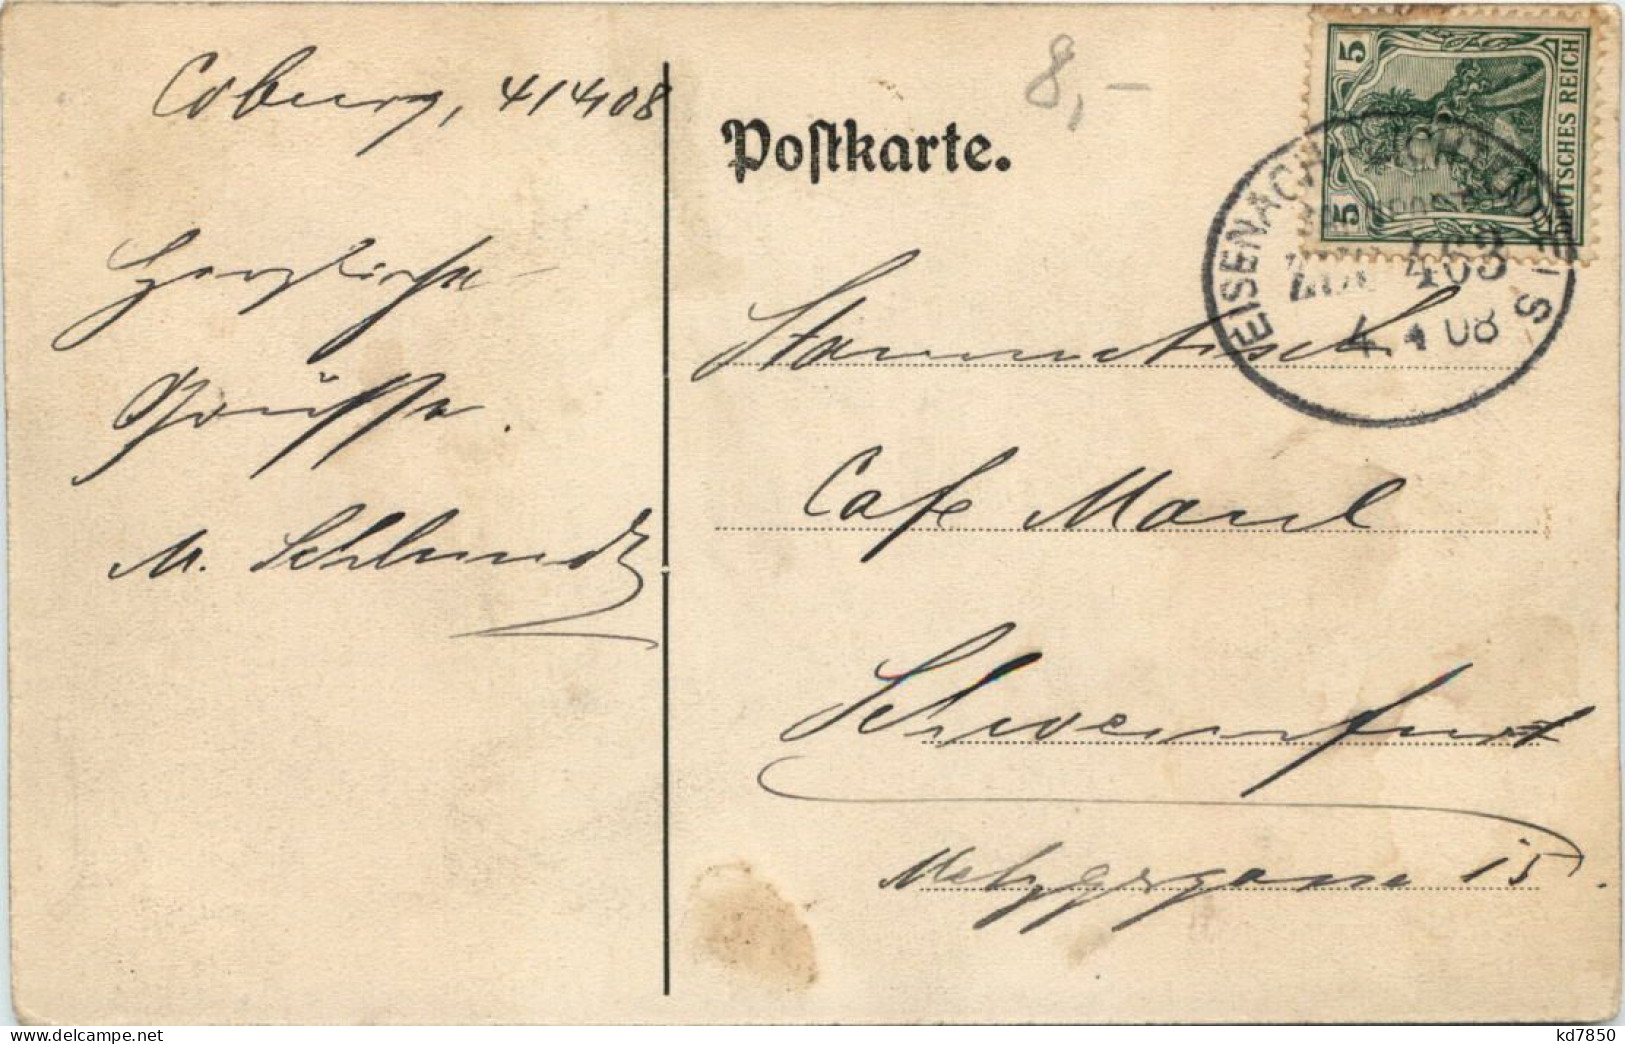 Coburg, 4/4 08
Herzliche
Grüsse.
M. Schlundt
Postkarte.
8,-
5
5
DEUTSCHES REICH
EISENACH
ZUG 403
4 4 08
Stammtisch
Cafe Maul
Schweinfurt
Metzgergasse 15.
www.delcampe.net
kd7850